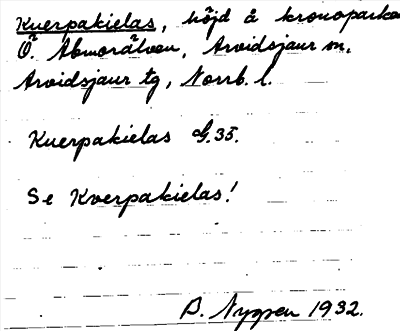 Kuerpakielas, höjd å kronoparken
Ö. Abmorälven, Arvidsjaur sn,
Arvidsjaur tg, Norrb. l.
Kuerpakielas G.35.
Se Kverpakielas!
B. Nygren 1932.